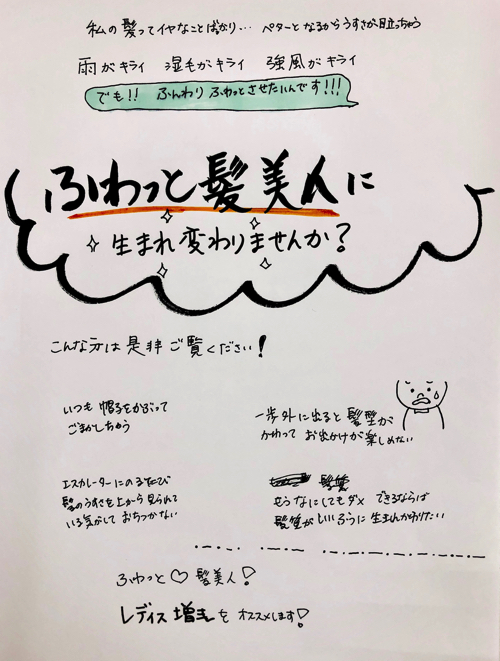 私の髪ってイヤなことばかり… ペターとなるからうすさが目立っちゃう
雨がキライ 湿毛がキライ 強風がキライ
でも!! ふんわり ふわっとさせたいんです!!!
ふわっと髪美人に
生まれ変わりませんか?
こんな方は是非ご覧ください!
いつも帽子をかぶって
ごまかしちゃう
一歩外に出ると髪型が
かわって お出かけが楽しめない
エスカレーターにのるたび
髪のうすさを上から見られて
いる気がして おちつかない
髪質
もうなにしてもダメ できるならば
髪質がいいふうに生まれかわりたい
ふわっと♡髪美人!
レディス増毛をオススメします!